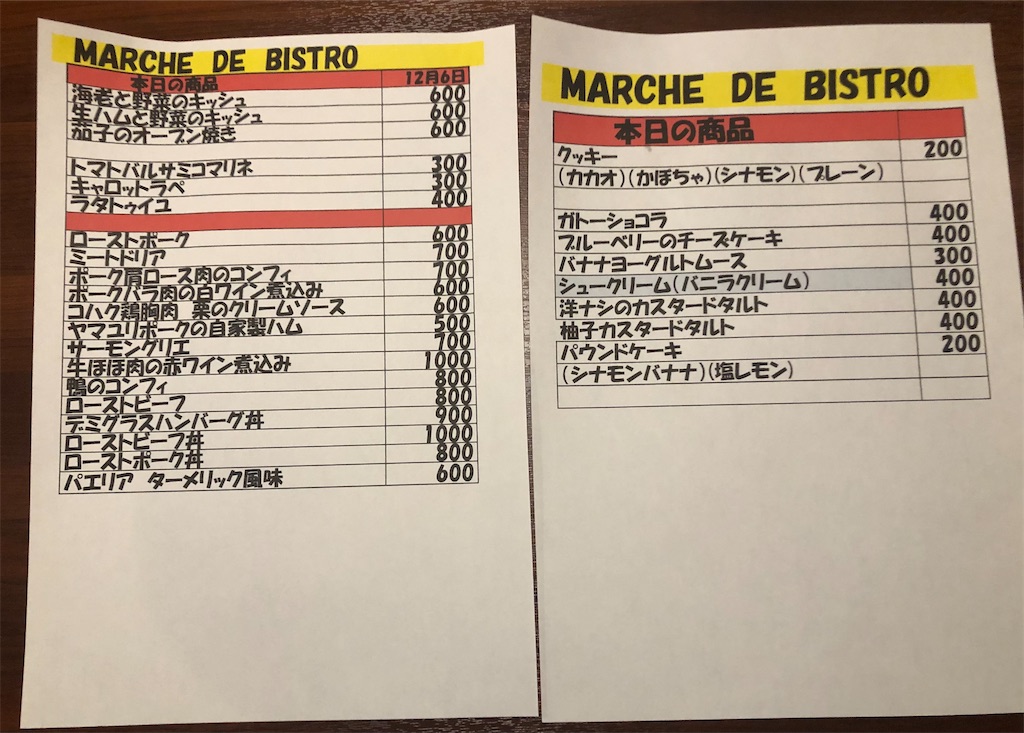 MARCHE DE BISTRO
本日の商品 12月6日
海老と野菜のキッシュ 600
生ハムと野菜のキッシュ 600
茄子のオーブン焼き 600
トマトバルサミコマリネ 300
キャロットラペ 300
ラタトゥイユ 400
ローストポーク 600
ミートドリア 700
ポーク肩ロース肉のコンフィ 700
ポークバラ肉の白ワイン煮込み 600
コハク鶏胸肉 栗のクリームソース 600
ヤマユリポークの自家製ハム 500
サーモングリエ 700
牛ほほ肉の赤ワイン煮込み 1000
鴨のコンフィ 800
ローストビーフ 800
デミグラスハンバーグ丼 900
ローストビーフ丼 1000
ローストポーク丼 800
パエリア ターメリック風味 600
MARCHE DE BISTRO
本日の商品
クッキー 200
(カカオ)(かぼちゃ)(シナモン)(プレーン)
ガトーショコラ 400
ブルーベリーのチーズケーキ 400
バナナヨーグルトムース 300
シュークリーム(バニラクリーム) 400
洋ナシのカスタードタルト 400
柚子カスタードタルト 400
パウンドケーキ 200
(シナモンバナナ)(塩レモン)